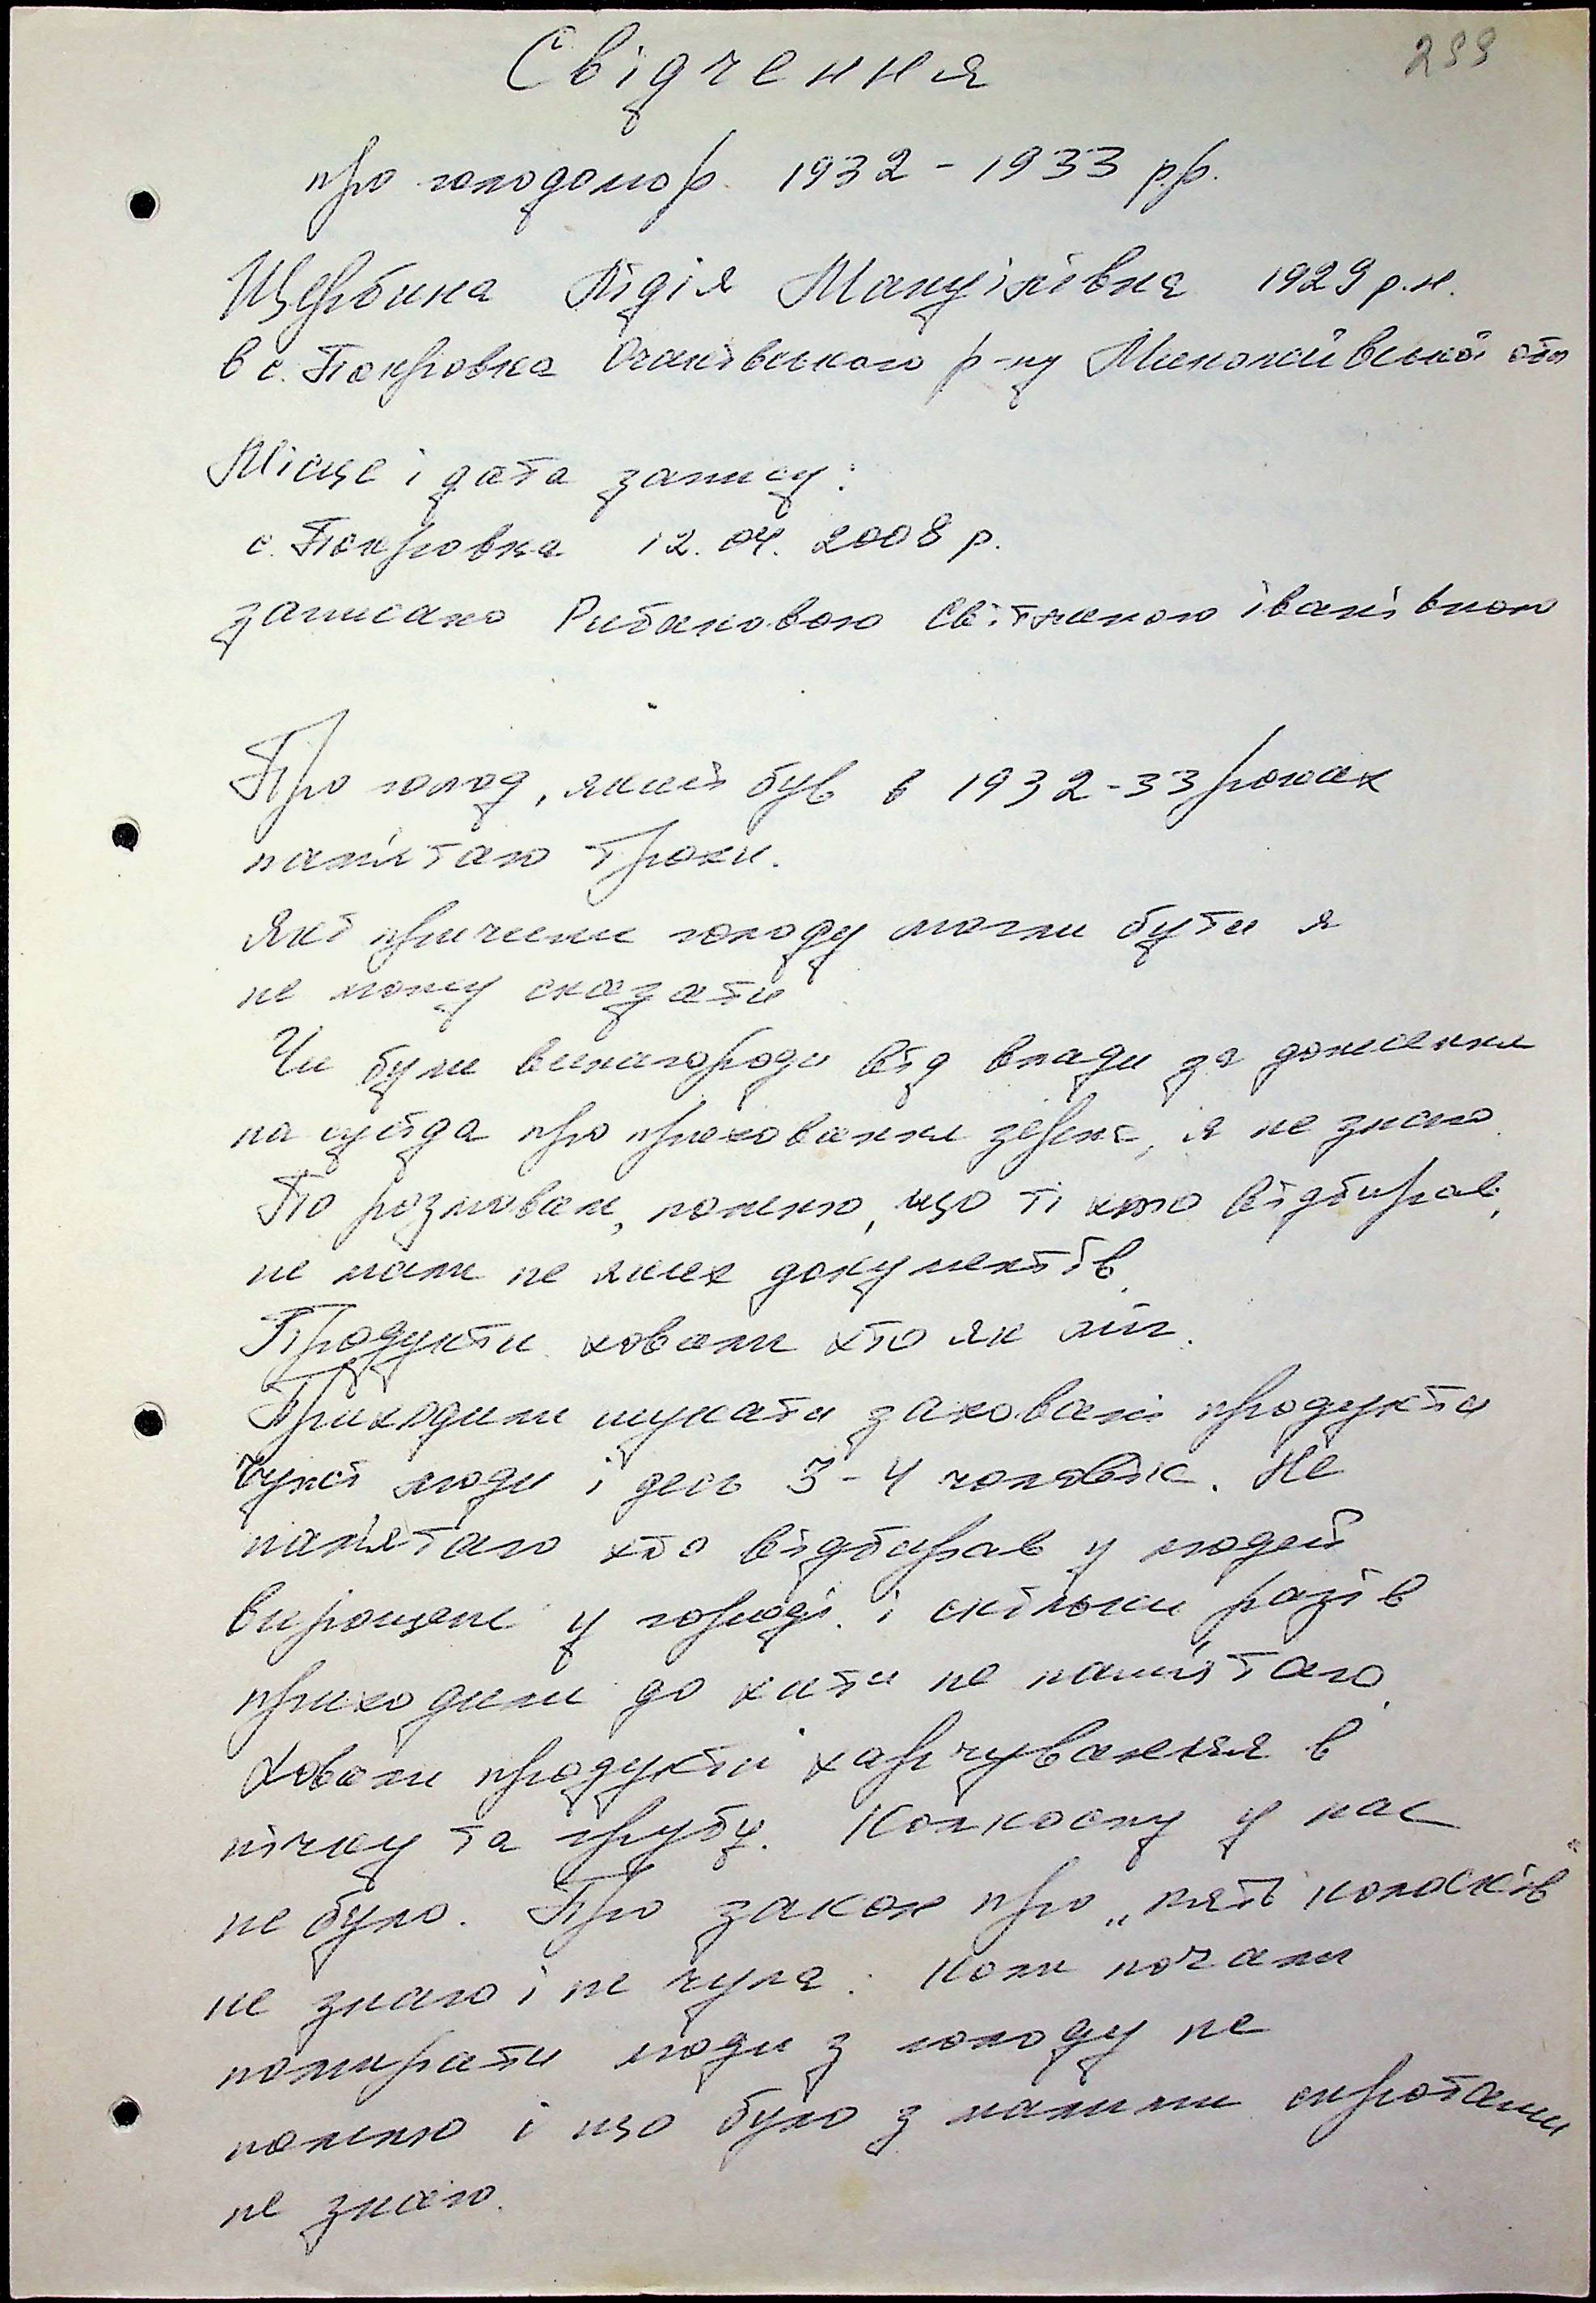 299
Свідчення
про голодомор 1932-1933 р.р.
Щербина Лідія Мануілівна 1929 р.н.
в с. Покровка Очаківського р-ну Миколаївської обл
Місце і дата запису:
с. Покровка 12.04.2008 р.
записано Рибаковою Світланою Іванівною
Про голод, який був в 1932-33 роках
пам'ятаю трохи.
Які причини голоду могли бути я
не можу сказати
Чи були винагороди від влади за донесення
на сусіда про приховання зерна, я не знаю.
По розмовам, помню, що ті хто відбирав,
не мали не яких документів.
Продукти ховали хто як міг.
Приходили шукати заховані продукти
чужі люди і десь 3-4 чоловік. Не
пам'ятаю хто відбирав у людей
вирощене у городі і скільки разів
приходили до хати не пам'ятаю.
Ховали продукти харчування в
пічку та грубу. Колхоспу у нас
не було. Про закон про „пять колосків"
не знаю і не чула. Коли почали
помирати люди з голоду не
помню і що було з малими сиротами
не знаю.